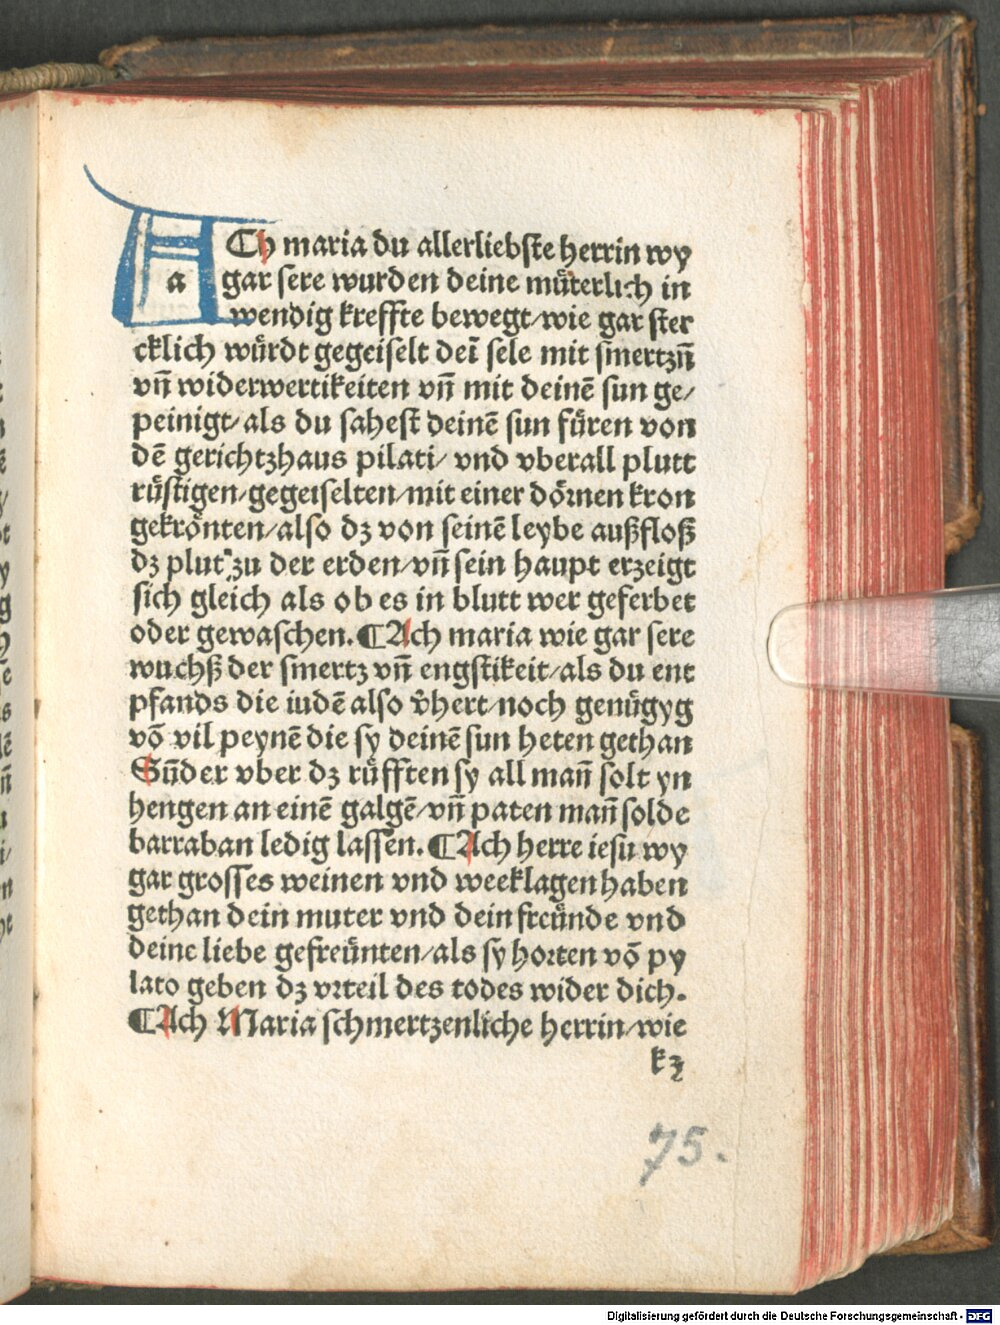 ACh maria du allerliebste herrin wy
a gar sere wurden deine müterlich in
wendig kreffte bewegt/wie gar ster
cklich würdt gegeiselt deī sele mit smertzn̄
vn̄ widerwertikeiten vn̄ mit deinē sun ge/
peinigt/als du sahest deinē sun füren von
dē gerichtzhaus pilati/ vnd vberall plutt
rüstigen/gegeiselten/mit einer dörnen kron
gekrönten/also dz von seinē leybe außfloß
dz plut zu der erden/vn̄ sein haupt erzeigt
sich gleich als ob es in blutt wer geferbet
oder gewaschen. ¶Ach maria wie gar sere
wuchß der smertz vn̄ engstikeit/als du ent
pfands die iudē also v̄hert/noch genügyg
vō vil peynē die sy deinē sun heten gethan
Sūder vber dz rüfften sy all man̄ solt yn
hengen an einē galgē/vn̄ paten man̄ solde
barraban ledig lassen. ¶Ach herre iesu wy
gar grosses weinen vnd weeklagen haben
gethan dein muter vnd dein freünde vnd
deine liebe gefreünten/als sy horten vō py
lato geben dz vrteil des todes wider dich.
¶Ach Maria schmertzenliche herrin/wie
kz
75.
Digitalisierung gefördert durch die Deutsche Forschungsgemeinschaft - DFG